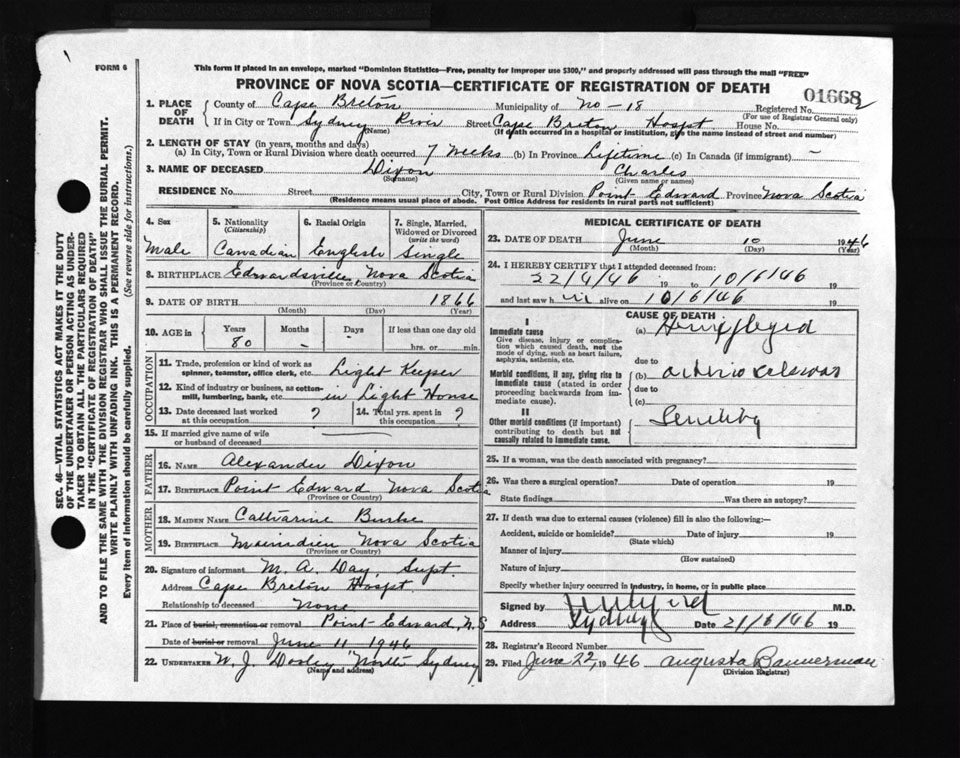 FORM 6
This form if placed in an envelope, marked "Dominion Statistics—Free, penalty for improper use $300," and properly addressed will pass through the mail "FREE"
PROVINCE OF NOVA SCOTIA—CERTIFICATE OF REGISTRATION OF DEATH
01668
1. PLACE OF DEATH
County of Cape Breton Municipality of No-18 Registered No.
(For use of Registrar General only)
If in City or Town Sydney River Street Cape Breton Hospt House No.
(Name) (If death occurred in a hospital or institution, give the name instead of street and number)
2. LENGTH OF STAY (in years, months and days)
(a) In City, Town or Rural Division where death occurred 7 weeks (b) In Province Lifetime (c) In Canada (if immigrant) —
3. NAME OF DECEASED Dixon Charles
(Surname) (Given name or names)
RESIDENCE No. Street City, Town or Rural Division Point Edward Province Nova Scotia
(Residence means usual place of abode. Post Office Address for residents in rural parts not sufficient)
4. Sex
Male
5. Nationality
(Citizenship)
Canadian
6. Racial Origin
English
7. Single, Married, Widowed or Divorced
(write the word)
Single
8. BIRTHPLACE Edwardsville, Nova Scotia
(Province or Country)
9. DATE OF BIRTH 1866
(Month) (Day) (Year)
10. AGE in
Years Months Days If less than one day old
80 — - hrs. or min.
OCCUPATION
11. Trade, profession or kind of work as spinner, teamster, office clerk, etc. Light Keeper
12. Kind of industry or business, as cotton-mill, lumbering, bank, etc. in Light House
13. Date deceased last worked at this occupation ?
14. Total yrs. spent in this occupation ?
15. If married give name of wife or husband of deceased
FATHER
16. NAME Alexander Dixon
17. BIRTHPLACE Point Edward Nova Scotia
(Province or Country)
MOTHER
18. MAIDEN NAME Catharine Burke
19. BIRTHPLACE Mainadieu Nova Scotia
(Province or Country)
20. Signature of informant M. A. Day, Supt.
Address Cape Breton Hospt.
Relationship to deceased None
21. Place of burial, cremation or removal Point-Edward, N.S
Date of burial or removal June 11 1946
22. UNDERTAKER W. J. Dooley North Sydney
(Name and address)
MEDICAL CERTIFICATE OF DEATH
23. DATE OF DEATH June 10 1946
(Month) (Day) (Year)
24. I HEREBY CERTIFY that I attended deceased from:
22/4/46 19 to 10/6/46 19
and last saw him alive on 10/6/46 19
CAUSE OF DEATH
I
Immediate cause
Give disease, injury or complication which caused death, not the mode of dying, such as heart failure, asphyxia, asthenia, etc.
(a)
due to
Morbid conditions, if any, giving rise to immediate cause (stated in order proceeding backwards from immediate cause).
(b)
due to
(c)
II
Other morbid conditions (if important) contributing to death but not causally related to immediate cause.
Senility
25. If a woman, was the death associated with pregnancy?
26. Was there a surgical operation? Date of operation 19
State findings Was there an autopsy?
27. If death was due to external causes (violence) fill in also the following:—
Accident, suicide or homicide? Date of injury 19
(State which)
Manner of injury
(How sustained)
Nature of injury
Specify whether injury occurred in industry, in home, or in public place
Signed by M.D.
Address Sydney Date 21/6/46 19
28. Registrar's Record Number
29. Filed June 22, 1946 Augusta Bannerman
(Division Registrar)
SEC. 46—VITAL STATISTICS ACT MAKES IT THE DUTY
OF THE UNDERTAKER OR PERSON ACTING AS UNDER-
TAKER TO OBTAIN ALL THE PARTICULARS REQUIRED
IN THE "CERTIFICATE OF REGISTRATION OF DEATH"
AND TO FILE THE SAME WITH THE DIVISION REGISTRAR WHO SHALL ISSUE THE BURIAL PERMIT.
WRITE PLAINLY WITH UNFADING INK. THIS IS A PERMANENT RECORD.
Every item of information should be carefully supplied. (See reverse side for instructions.)